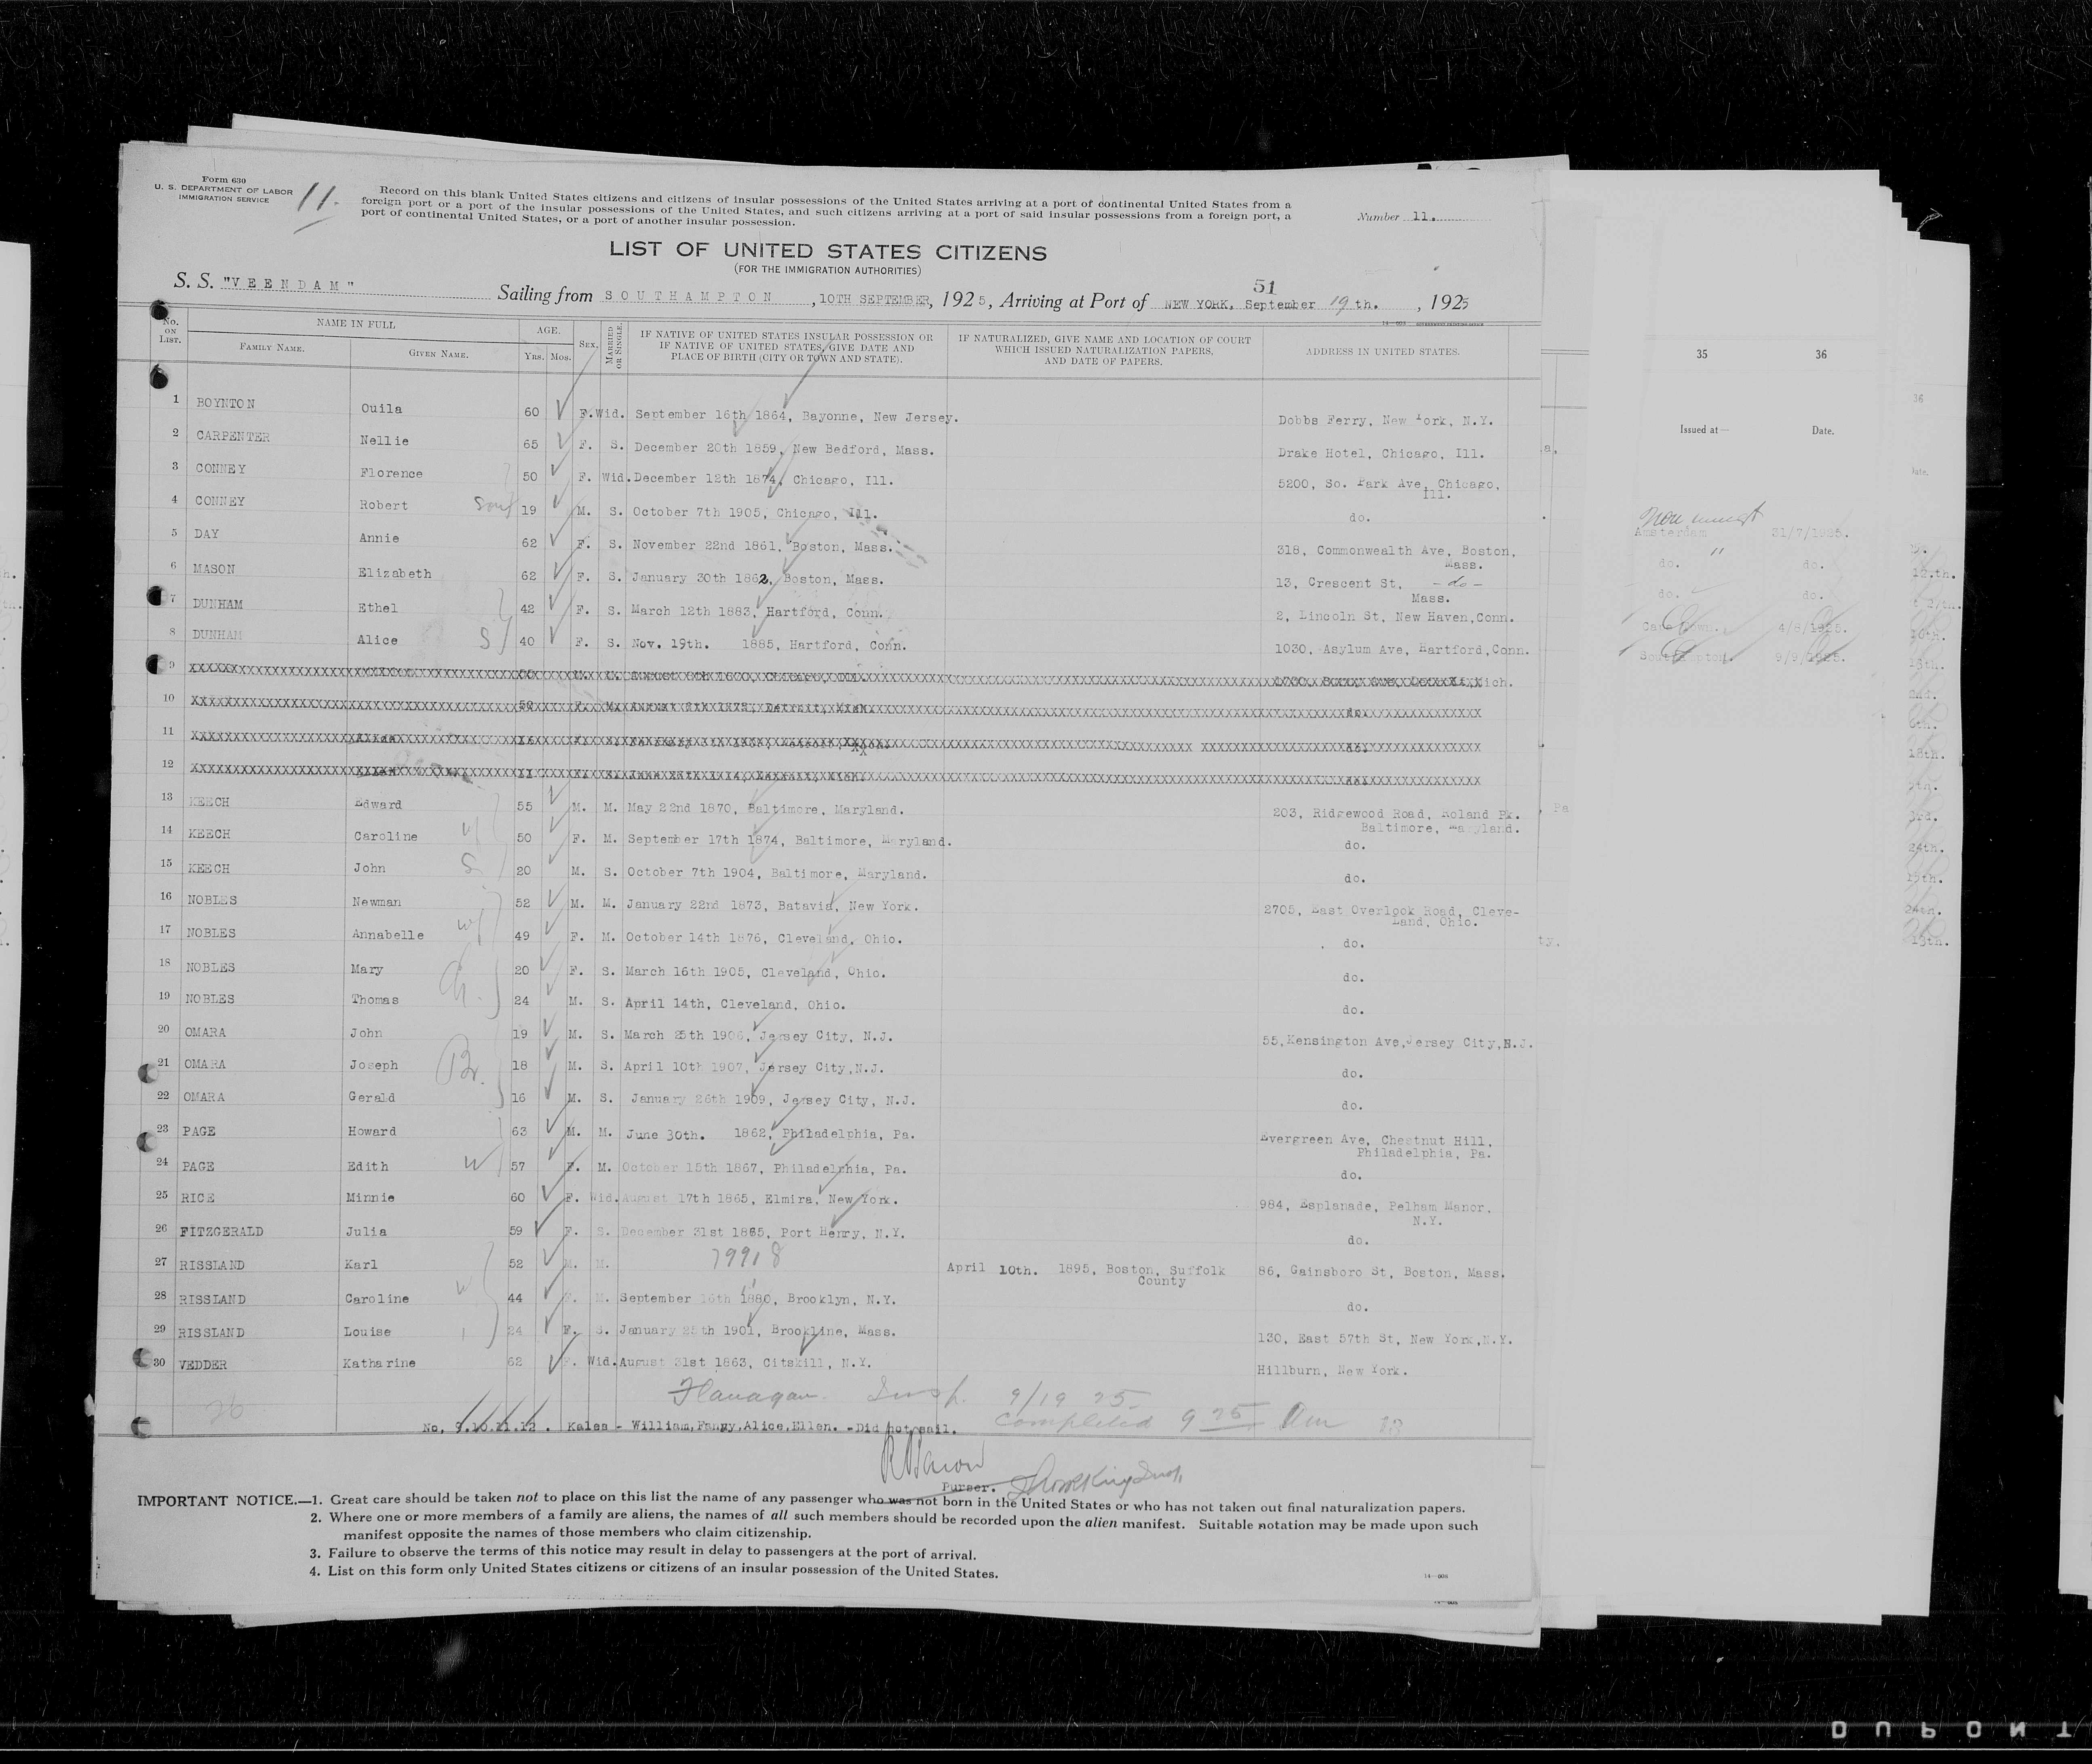 Form 630
U. S. DEPARTMENT OF LABOR
IMMIGRATION SERVICE
11.
Record on this blank United States citizens and citizens of insular possessions of the United States arriving at a port of continental United States from a
foreign port or a port of the insular possessions of the United States, and such citizens arriving at a port of said insular possessions from a foreign port, a
port of continental United States, or a port of another insular possession.
Number 11.
LIST OF UNITED STATES CITIZENS
(FOR THE IMMIGRATION AUTHORITIES)
51
S. S. "VEENDAM" Sailing from SOUTHAMPTON, 10TH SEPTEMBER, 1925, Arriving at Port of NEW YORK, September 19th., 1925
No. ON LIST.
NAME IN FULL
FAMILY NAME.
GIVEN NAME.
AGE.
Yrs. Mos.
SEX.
MARRIED OR SINGLE.
IF NATIVE OF UNITED STATES INSULAR POSSESSION OR
IF NATIVE OF UNITED STATES, GIVE DATE AND
PLACE OF BIRTH (CITY OR TOWN AND STATE).
IF NATURALIZED, GIVE NAME AND LOCATION OF COURT
WHICH ISSUED NATURALIZATION PAPERS,
AND DATE OF PAPERS.
ADDRESS IN UNITED STATES.
1 BOYNTON Ouila 60 F. Wid. September 16th 1864, Bayonne, New Jersey. Dobbs Ferry, New York, N.Y.
2 CARPENTER Nellie 65 F. S. December 20th 1859, New Bedford, Mass. Drake Hotel, Chicago, Ill.
3 CONNEY Florence 50 F. Wid. December 12th 1874, Chicago, Ill. 5200, So. Park Ave, Chicago,
Ill.
4 CONNEY Robert son 19 M. S. October 7th 1905, Chicago, Ill. do.
5 DAY Annie 62 F. S. November 22nd 1861, Boston, Mass. 318, Commonwealth Ave, Boston,
Mass.
6 MASON Elizabeth 62 F. S. January 30th 1862, Boston, Mass. 13, Crescent St, - do -
Mass.
7 DUNHAM Ethel 42 F. S. March 12th 1883, Hartford, Conn. 2, Lincoln St, New Haven, Conn.
8 DUNHAM Alice S 40 F. S. Nov. 19th. 1885, Hartford, Conn. 1030, Asylum Ave, Hartford, Conn.
9
10 do.
11 do.
12 do.
13 KEECH Edward 55 M. M. May 22nd 1870, Baltimore, Maryland. 203, Ridgewood Road, Roland Pk.
Baltimore, Maryland.
14 KEECH Caroline w 50 F. M. September 17th 1874, Baltimore, Maryland. do.
15 KEECH John S 20 M. S. October 7th 1904, Baltimore, Maryland. do.
16 NOBLES Newman 52 M. M. January 22nd 1873, Batavia, New York. 2705, East Overlook Road, Cleve-
Land, Ohio.
17 NOBLES Annabelle w 49 F. M. October 14th 1876, Cleveland, Ohio. do.
18 NOBLES Mary Ch. 20 F. S. March 16th 1905, Cleveland, Ohio. do.
19 NOBLES Thomas 24 M. S. April 14th, Cleveland, Ohio. do.
20 OMARA John 19 M. S. March 25th 1906, Jersey City, N.J. 55, Kensington Ave, Jersey City, N.J.
21 OMARA Joseph Br. 18 M. S. April 10th 1907, Jersey City, N.J. do.
22 OMARA Gerald 16 M. S. January 26th 1909, Jersey City, N.J. do.
23 PAGE Howard 63 M. M. June 30th. 1862, Philadelphia, Pa. Evergreen Ave, Chestnut Hill,
Philadelphia, Pa.
24 PAGE Edith W 57 F. M. October 15th 1867, Philadelphia, Pa. do.
25 RICE Minnie 60 F. Wid. August 17th 1865, Elmira, New York. 984, Esplanade, Pelham Manor,
N.Y.
26 FITZGERALD Julia 59 F. S. December 31st 1865, Port Henry, N.Y. do.
27 RISSLAND Karl 52 M. M. 79918 April 10th. 1895, Boston, Suffolk
County 86, Gainsboro St, Boston, Mass.
28 RISSLAND Caroline w 44 F. M. September 16th 1880, Brooklyn, N.Y. do.
29 RISSLAND Louise 24 F. S. January 25th 1901, Brookline, Mass. 130, East 57th St, New York, N.Y.
30 VEDDER Katharine 62 F. Wid. August 31st 1863, Citskill, N.Y. Hillburn, New York.
26
Flanagan Insp. 9/19 25
No, 9.10.11.12. Kales - William, Fanny, Alice, Ellen. - Did not sail.
Completed 9 25 Am
Purser.
IMPORTANT NOTICE.—1. Great care should be taken not to place on this list the name of any passenger who was not born in the United States or who has not taken out final naturalization papers.
2. Where one or more members of a family are aliens, the names of all such members should be recorded upon the alien manifest. Suitable notation may be made upon such
manifest opposite the names of those members who claim citizenship.
3. Failure to observe the terms of this notice may result in delay to passengers at the port of arrival.
4. List on this form only United States citizens or citizens of an insular possession of the United States.
14—608
35 36
Issued at— Date.
Amsterdam 31/7/1925.
do. " do.
do. do.
Cape Town. 4/8/1925.
Southampton. 9/9/1925.
DUPONT